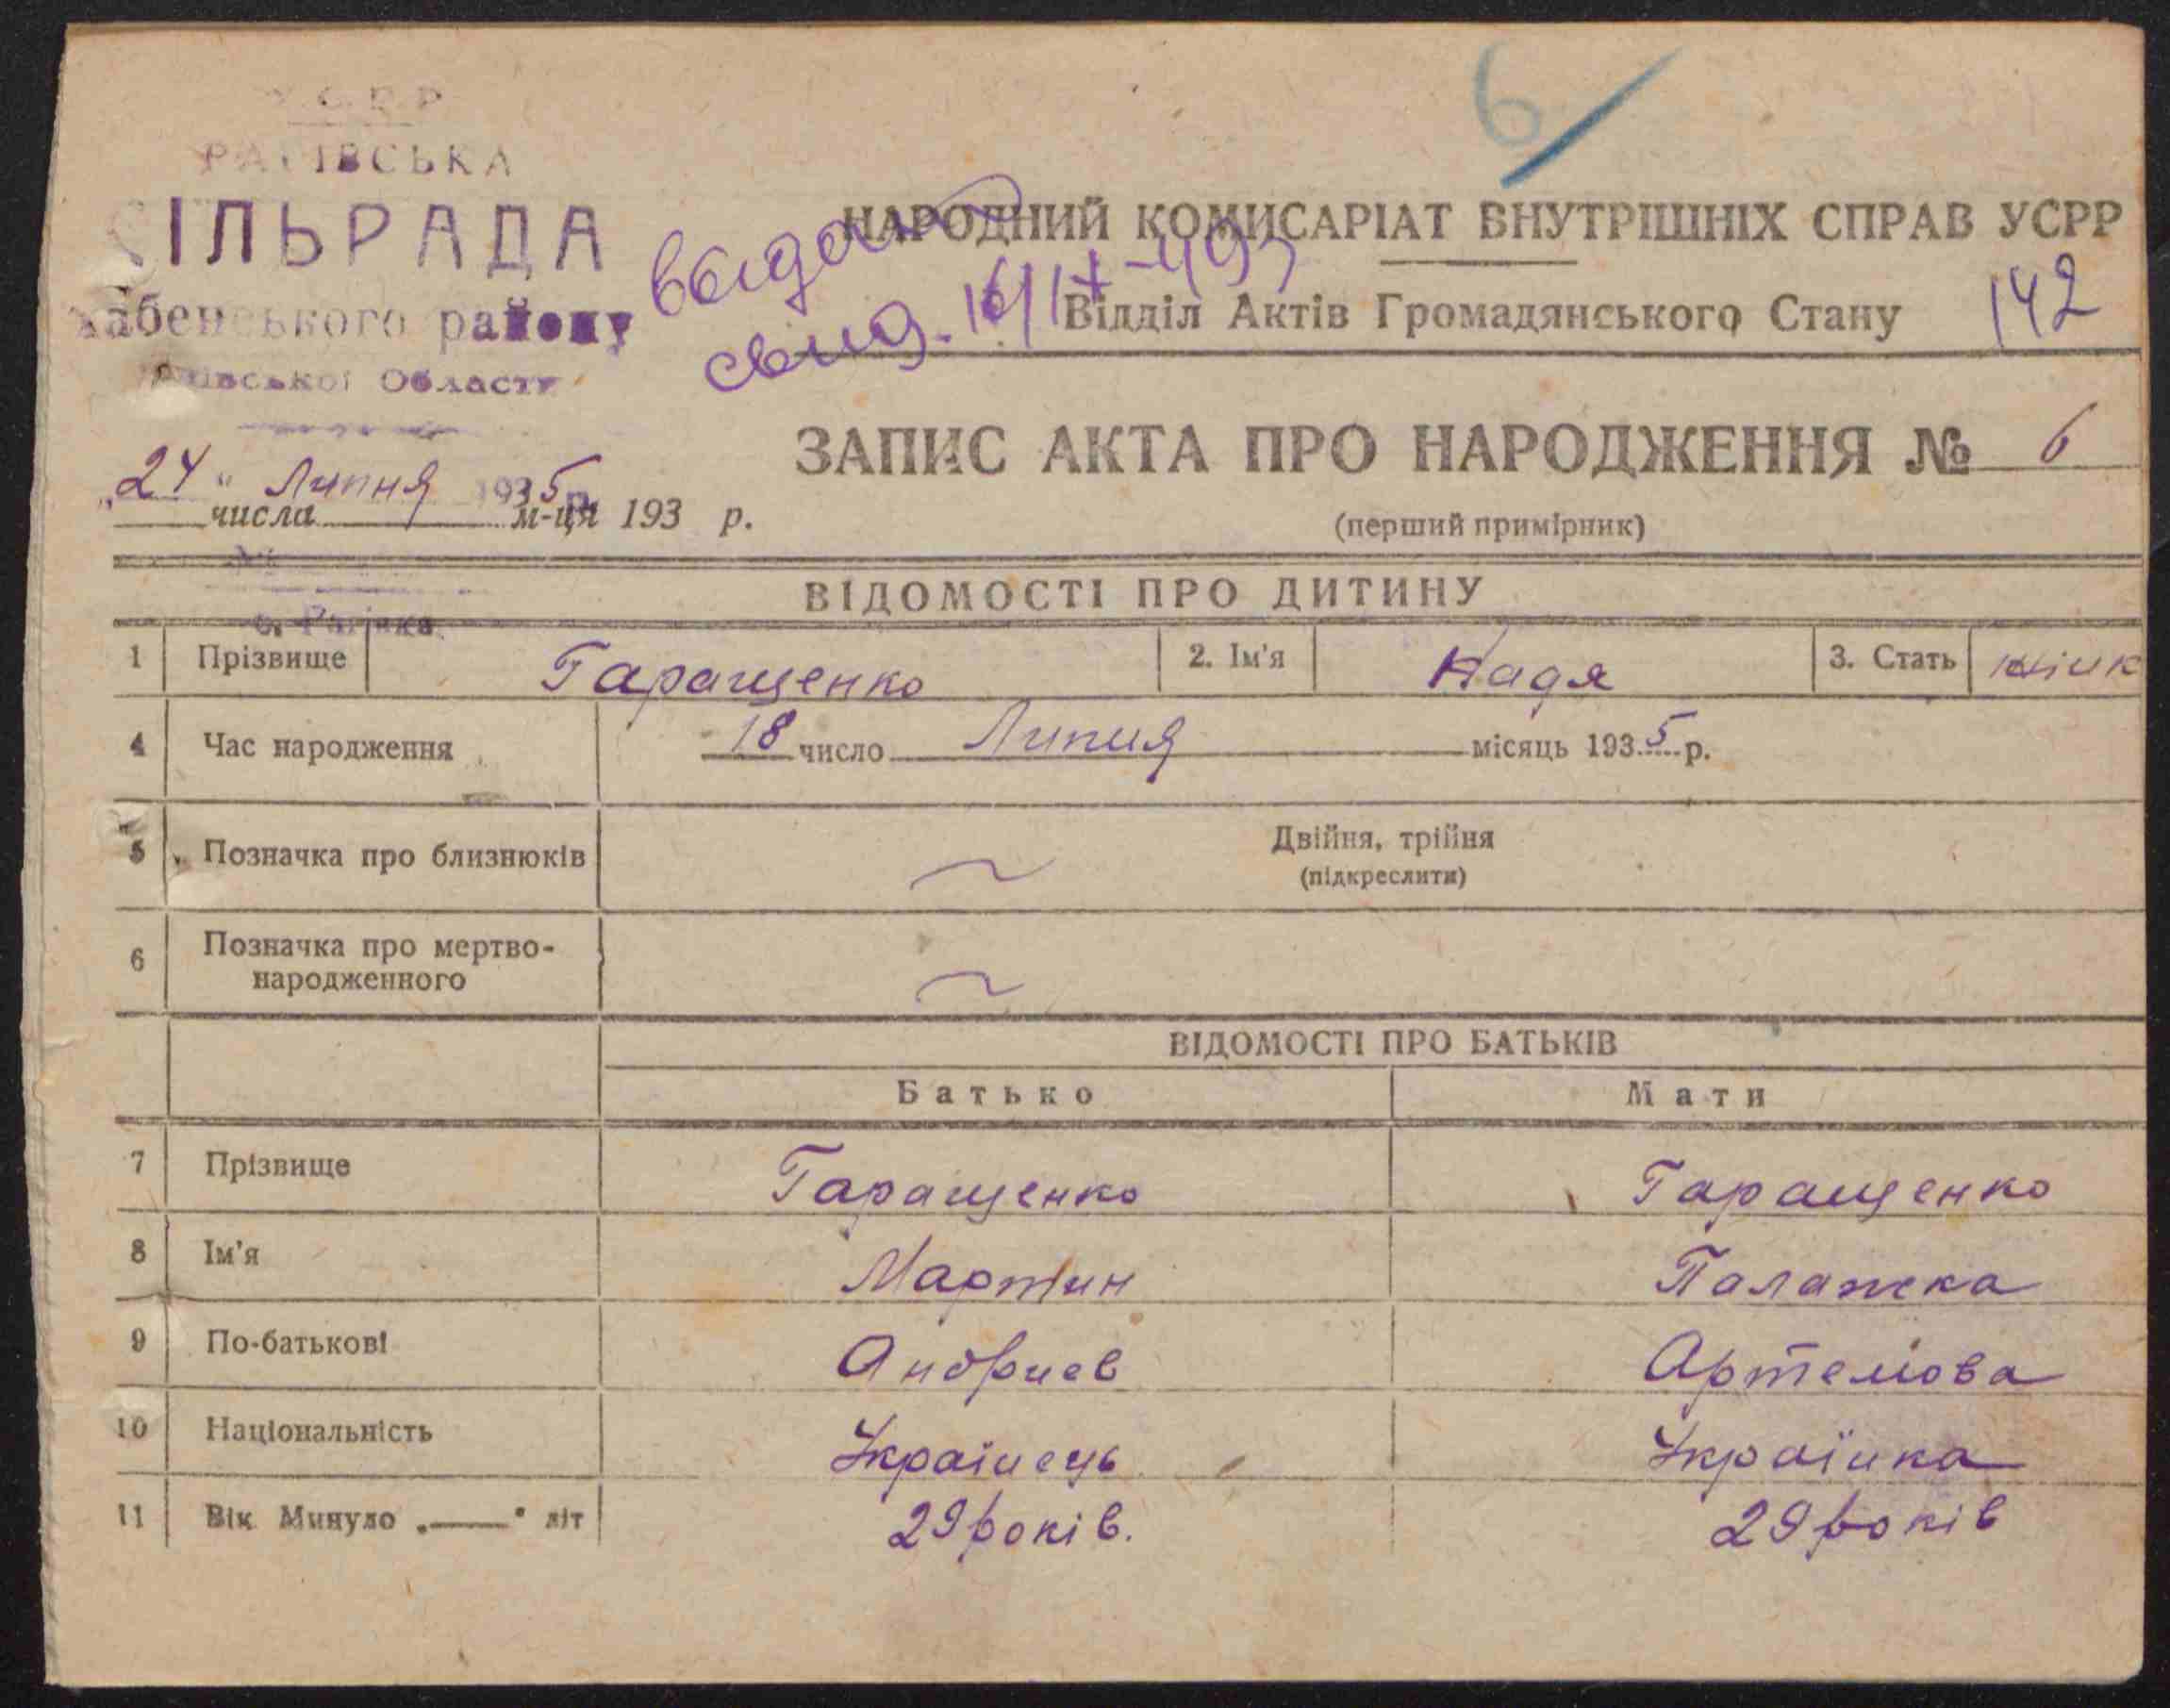 У.С.Р.Р
РАГІВСЬКА
СІЛЬРАДА
Хабенського району
Київської Области
6
видано
свид. 16/IX-49р
НАРОДНИЙ КОМИСАРІАТ ВНУТРІШНІХ СПРАВ УСРР
Відділ Актів Громадянського Стану 142
ЗАПИС АКТА ПРО НАРОДЖЕННЯ № 6
(перший примірник)
„24" Липня 1935 р.
числа м-ця 193 р.
№
с. Рагівка
ВІДОМОСТІ ПРО ДИТИНУ
1 Прізвище Гаращенко 2. Ім'я Надя 3. Стать жінк
4 Час народження 18 число Липня місяць 1935 р.
5 Позначка про близнюків ~ Двійня, трійня
(підкреслити)
6 Позначка про мертво-
народженного ~
ВІДОМОСТІ ПРО БАТЬКІВ
Батько Мати
7 Прізвище Гаращенко Гаращенко
8 Ім'я Мартин Палажка
9 По-батькові Андриев Артемова
10 Національність Українець Українка
11 Вік Минуло „—" літ 29 років. 29 років